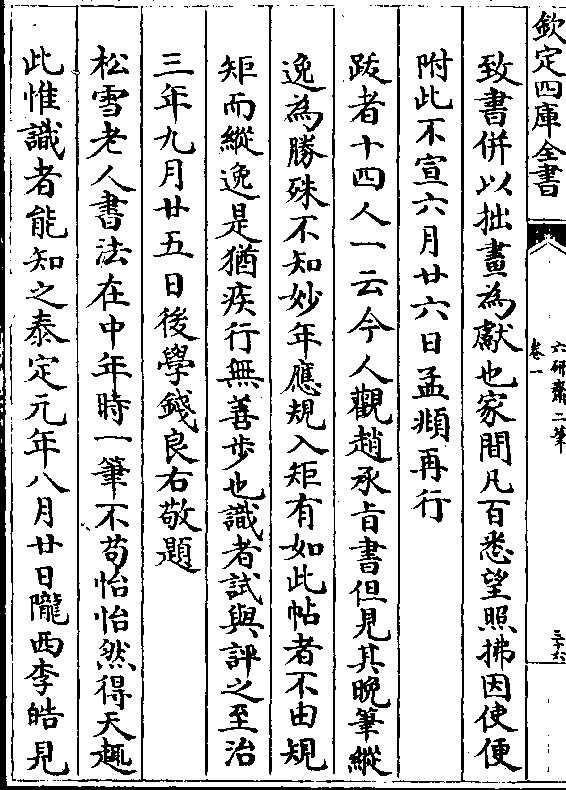 欽定四庫全書
六研齋二筆
卷一
三十六
致書併以拙畫為獻也家間凡百悉望照拂因使便
附此不宣六月廿六日孟頫再行
跋者十四人一云今人觀趙承旨書但見其晚筆縱
逸為勝殊不知妙年應規入矩有如此帖者不由規
矩而縱逸是猶疾行無善步也識者試與評之至治
三年九月廿五日後學錢良右敬題
松雪老人書法在中年時一筆不苟怡怡然得天趣
此惟識者能知之泰定元年八月廿日隴西李皓見